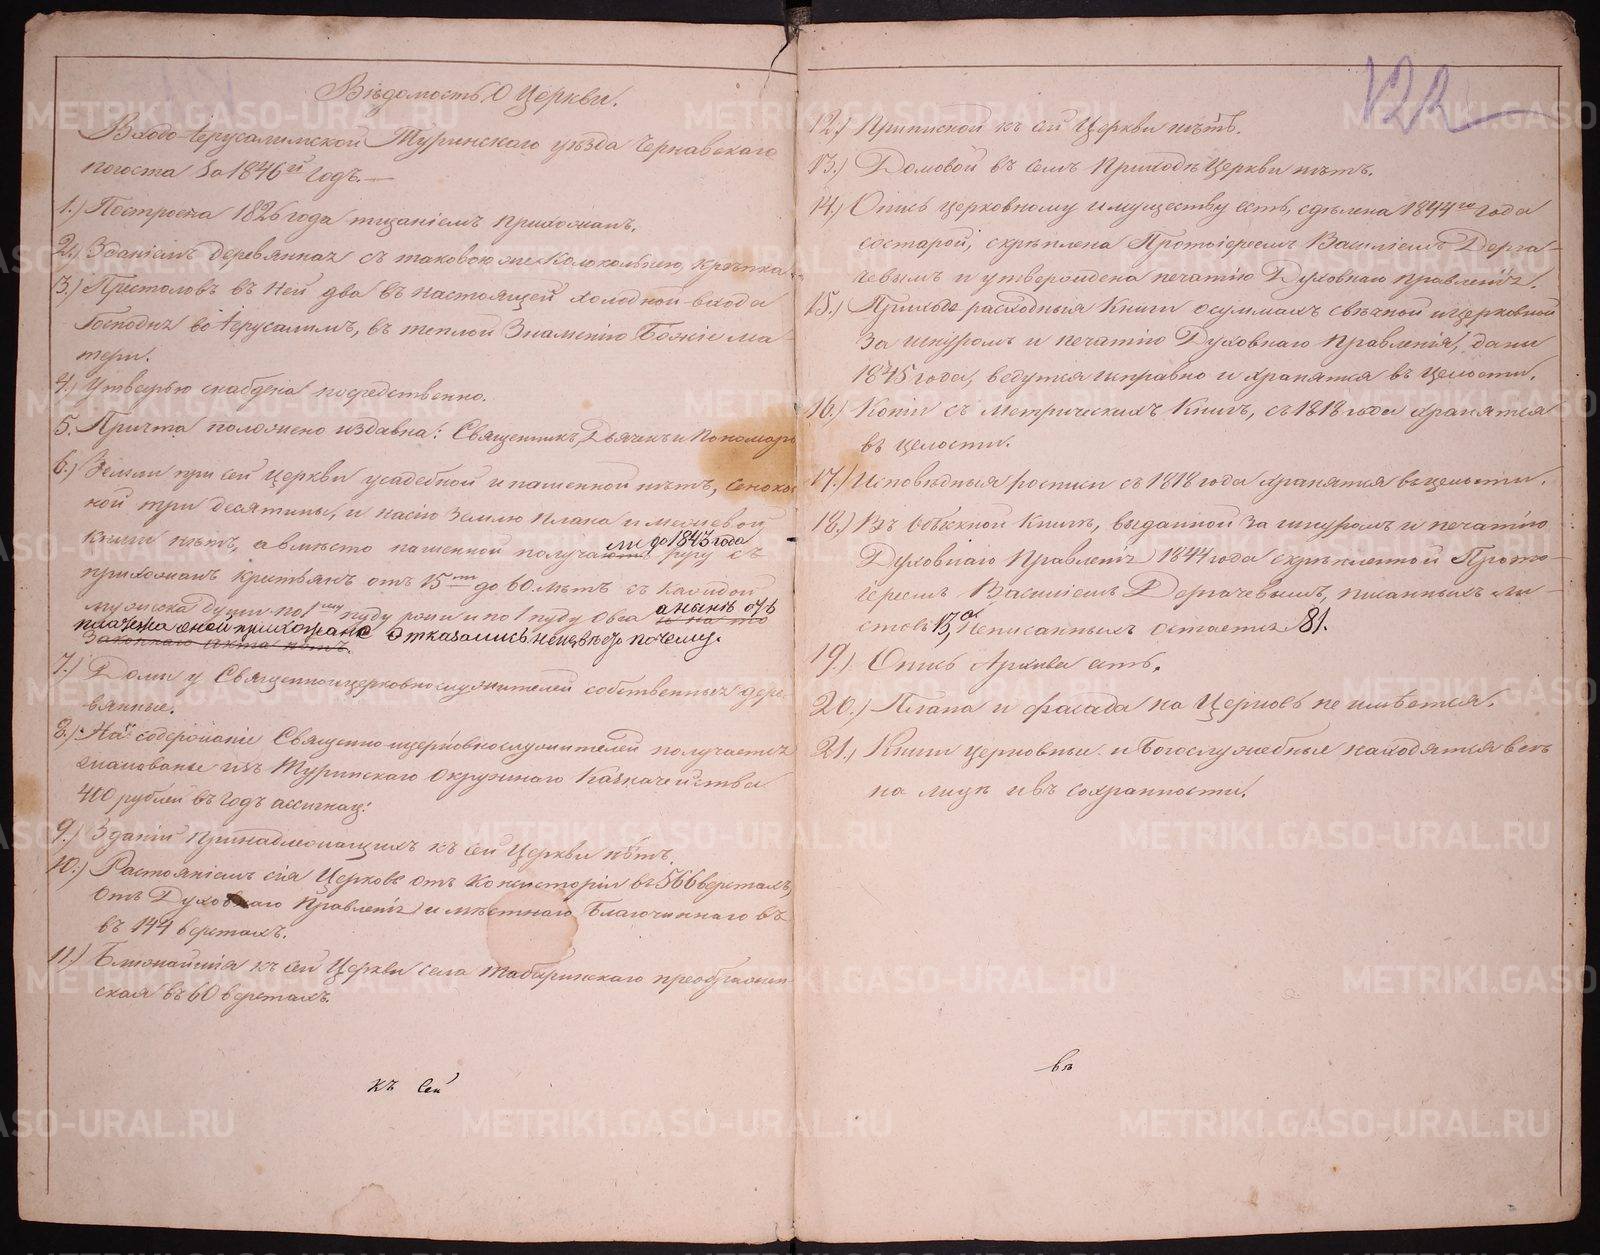 Вѣдомость О Церкви.
Входо-Іерусалимской Туринскаго уѣзда Чернавскаго
погоста За 1846й Годъ.—
1.) Построена 1826 года тщаніемъ прихожанъ.
2.) Зданіемъ деревянная съ таковою же Колокольнею, крѣпка.
3.) Престоловъ въ ней два въ настоящей холодной входа
Господня во Іерусалимъ, въ теплой Знаменію Божіе ма-
тери.
4.) Утварью снабдена посредственно.
5. Причта положено издавна: Священникъ, Дьячекъ и Пономарь
6.) Земли при сей Церкви усадебной и пашенной нѣтъ, сеноко
ной три десятины, и насію Землю плана и межевой
книги нѣтъ, а вмѣсто пашенной получали до 1843 года ругу съ
прихожанъ крестьянъ отъ 15ти до 60 лѣтъ съ каждой
мужеска души по 1му пуду ржи и по 1 пуду Овса и на то а нынѣ отъ
платежа оной прихожане отказались неизвѣстно почему.
Законнаго Акта нѣтъ.
7.) Домы у Священноицерковнослужителей собственныя дере-
вянные.
8.) На содержаніе Священно-ицерковнослужителей получается
жалованье изъ Туринскаго Окружнаго Казначейства
400 рублей въ годъ ассигнац:
9.) Зданій принадлежащихъ къ сей Церкви нѣтъ.
10.) Растояніемъ сія Церковь отъ Консисторіи въ 566 верстахъ,
отъ Духовнаго Правленія и мѣстнаго Благочиннаго въ
въ 144 верстахъ.
11.) Ближайшія къ сей Церкви села Табаринскаго преображен-
ская въ 60 верстахъ.
къ Сей
122
12.) Приписной къ сей Церкви нѣтъ.
13.) Домовой въ семъ Приходѣ Церкви нѣтъ.
14.) Опись церковному имуществу есть, сдѣлена 1844го года
состарой, скрѣплена Протоіереемъ Василіемъ Дерга-
чевымъ и утверждена печатію Духовнаго правленія.
15.) Приходо-расходныя Книги осуммахъ свѣчной ицерковной
За шнуромъ и печатію Духовнаго правленія, даны
1845 года, ведутся исправно и хранятся въ целости.
16.) Копіи съ Метрическихъ Книгъ, съ 1818 года хранятся
въ целости.
17.) Исповѣдныя росписи съ 1818 года хранятся въ целости.
18.) Въ Обыскной Книгѣ, выданной За шнуромъ и печатію
Духовнаго Правленія 1844 года скрѣпленной Прото-
іереемъ Василіемъ Дергачевымъ, писанныхъ ли-
стовъ 13, неписанныхъ остается 81.
19.) Опись Архива есть.
20.) Плана и фасада на Церковь не имѣется.
21.) Книги церковные и Богослужебные находятся всѣ
на лицѣ и въ сохранности.
въ
METRIKI.GASO-URAL.RU